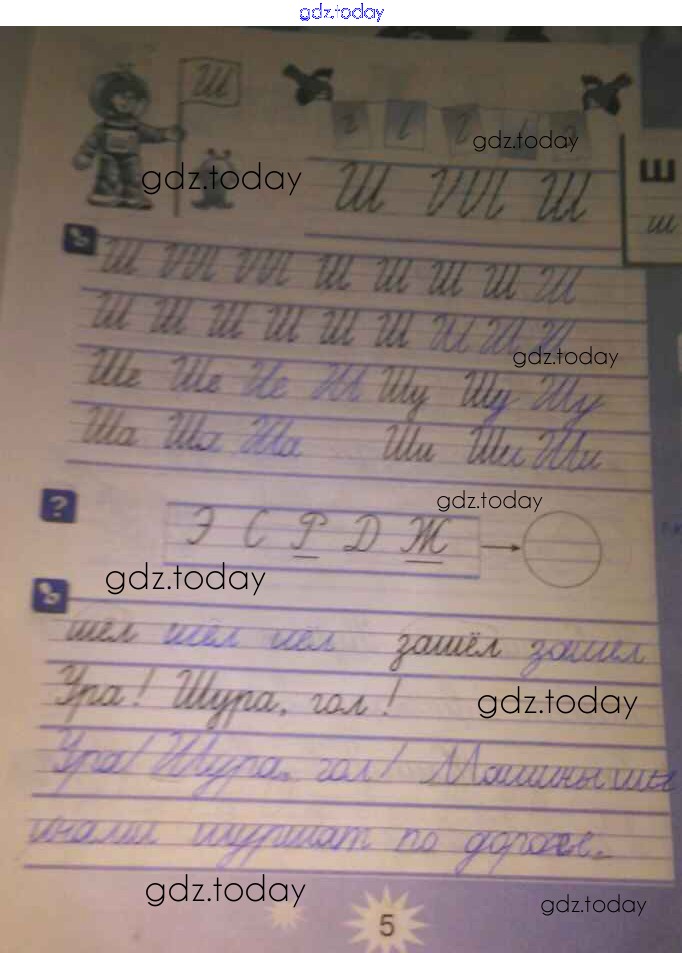 gdz.today
Ш
gdz.today
gdz.today
Ш Ш Ш
Ш
ш
Ш Ш Ш Ш Ш Ш Ш Ш
Ш Ш Ш Ш Ш Ш Ш Ш Ш
gdz.today
Ше Ше Ше Шу Шу Шу
Ша Ша Ша Ши Ши Ши
gdz.today
?
Э С Р Д Ж
gdz.today
шёл шёл шёл зашёл зашёл
Ура! Шура, гол!
gdz.today
Ура! Шура, гол! Машины ши
нами шуршат по дороге.
gdz.today
gdz.today
5